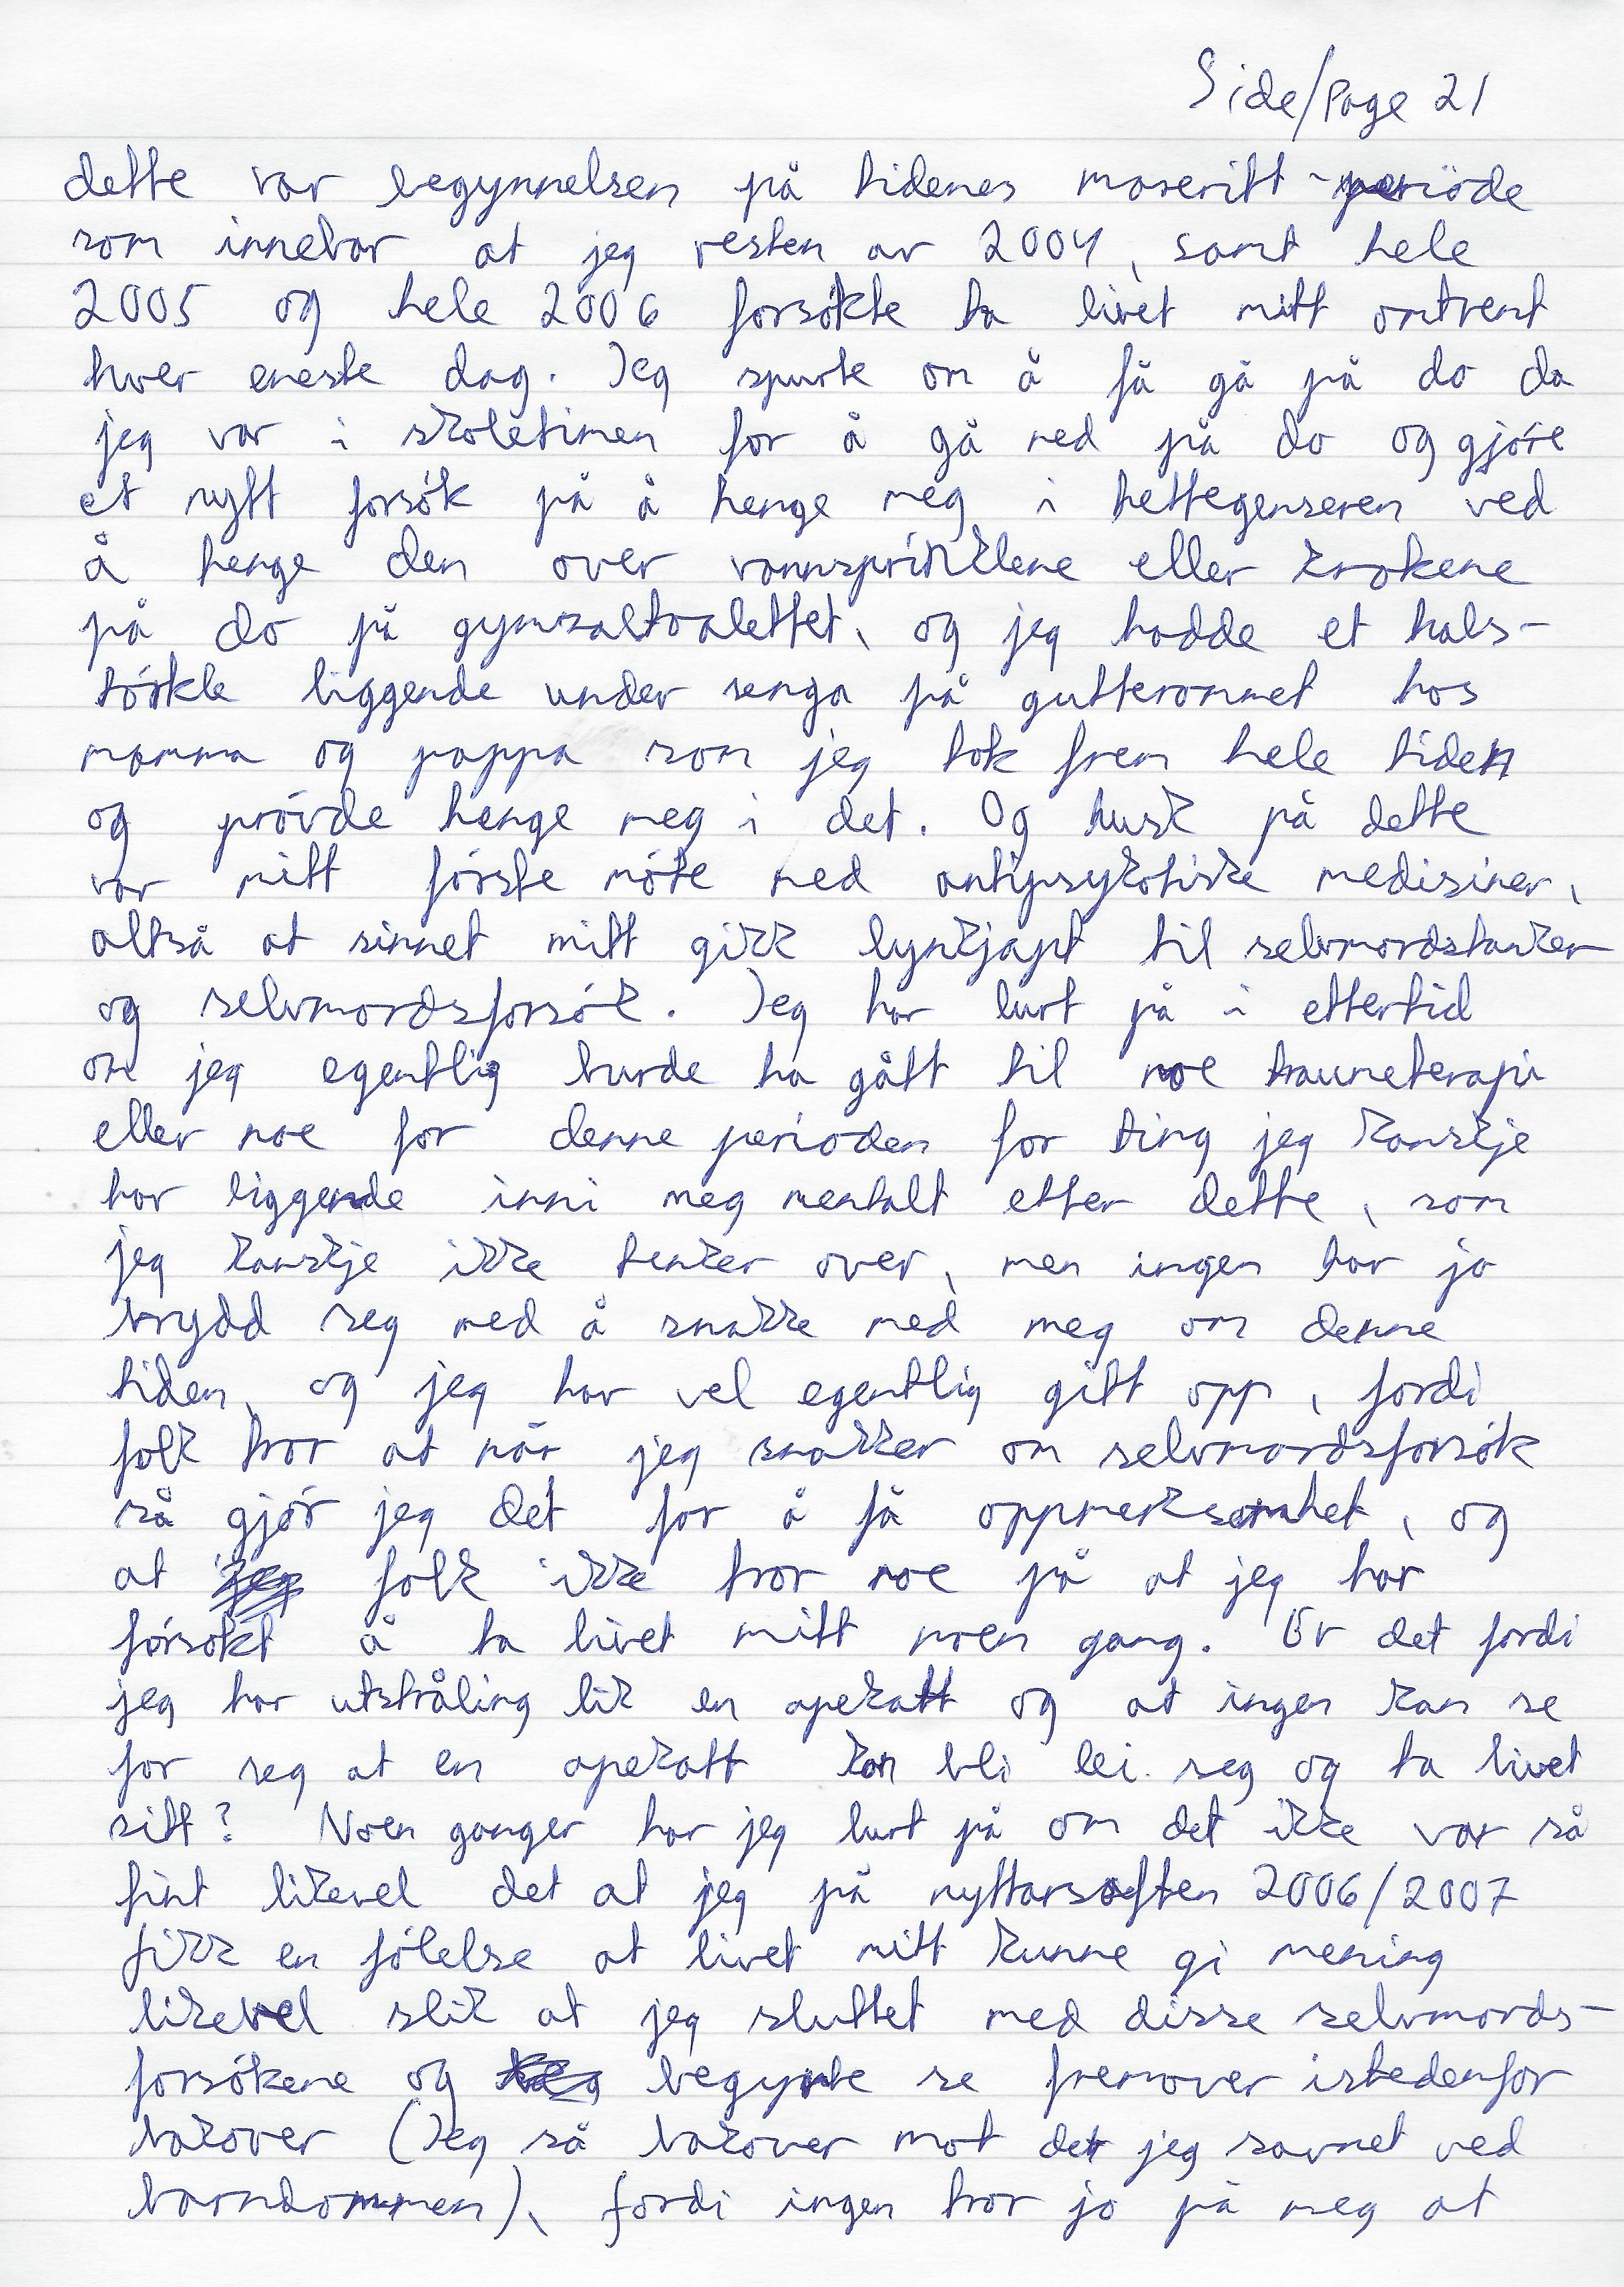 Side/Page 21
dette var begynnelsen på tidenes mareritt-periode
som innebar at jeg resten av 2004, samt hele
2005 og hele 2006 forsøkte ta livet mitt omtrent
hver eneste dag. Jeg spurte om å få gå på do da
jeg var i skoletimen for å gå ned på do og gjøre
et nytt forsøk på å henge meg i hettegenseren ved
å henge den over vannsprinklene eller krokene
på do på gymsaltoalettet, og jeg hadde et hals-
tørkle liggende under senga på gutterommet hos
mamma og pappa som jeg tok frem hele tiden
og prøvde henge meg i det. Og husk på dette
var mitt første møte med antipsykotiske medisiner,
altså at sinnet mitt gikk lynkjapt til selvmordstanker
og selvmordsforsøk. Jeg har lurt på i ettertid
om jeg egentlig burde ha gått til noe traumeterapi
eller noe for denne perioden for ting jeg kanskje
har liggende inni meg mentalt etter dette, som
jeg kanskje ikke tenker over, men ingen har jo
brydd seg med å snakke med meg om denne
tiden, og jeg har vel egentlig gitt opp, fordi
folk tror at når jeg snakker om selvmordsforsøk
så gjør jeg det for å få oppmerksomhet, og
at folk ikke tror noe på at jeg har
forsøkt å ta livet mitt noen gang. Er det fordi
jeg har utstråling lik en apekatt og at ingen kan se
for seg at en apekatt kan bli lei seg og ta livet
sitt? Noen ganger har jeg lurt på om det ikke var så
fint likevel det at jeg på nyttårsaften 2006/2007
fikk en følelse at livet mitt kunne gi mening
likevel slik at jeg sluttet med disse selvmords-
forsøkene og begynte se fremover istedenfor
bakover (Jeg så bakover mot det jeg savnet ved
barndommen), fordi ingen tror jo på meg at